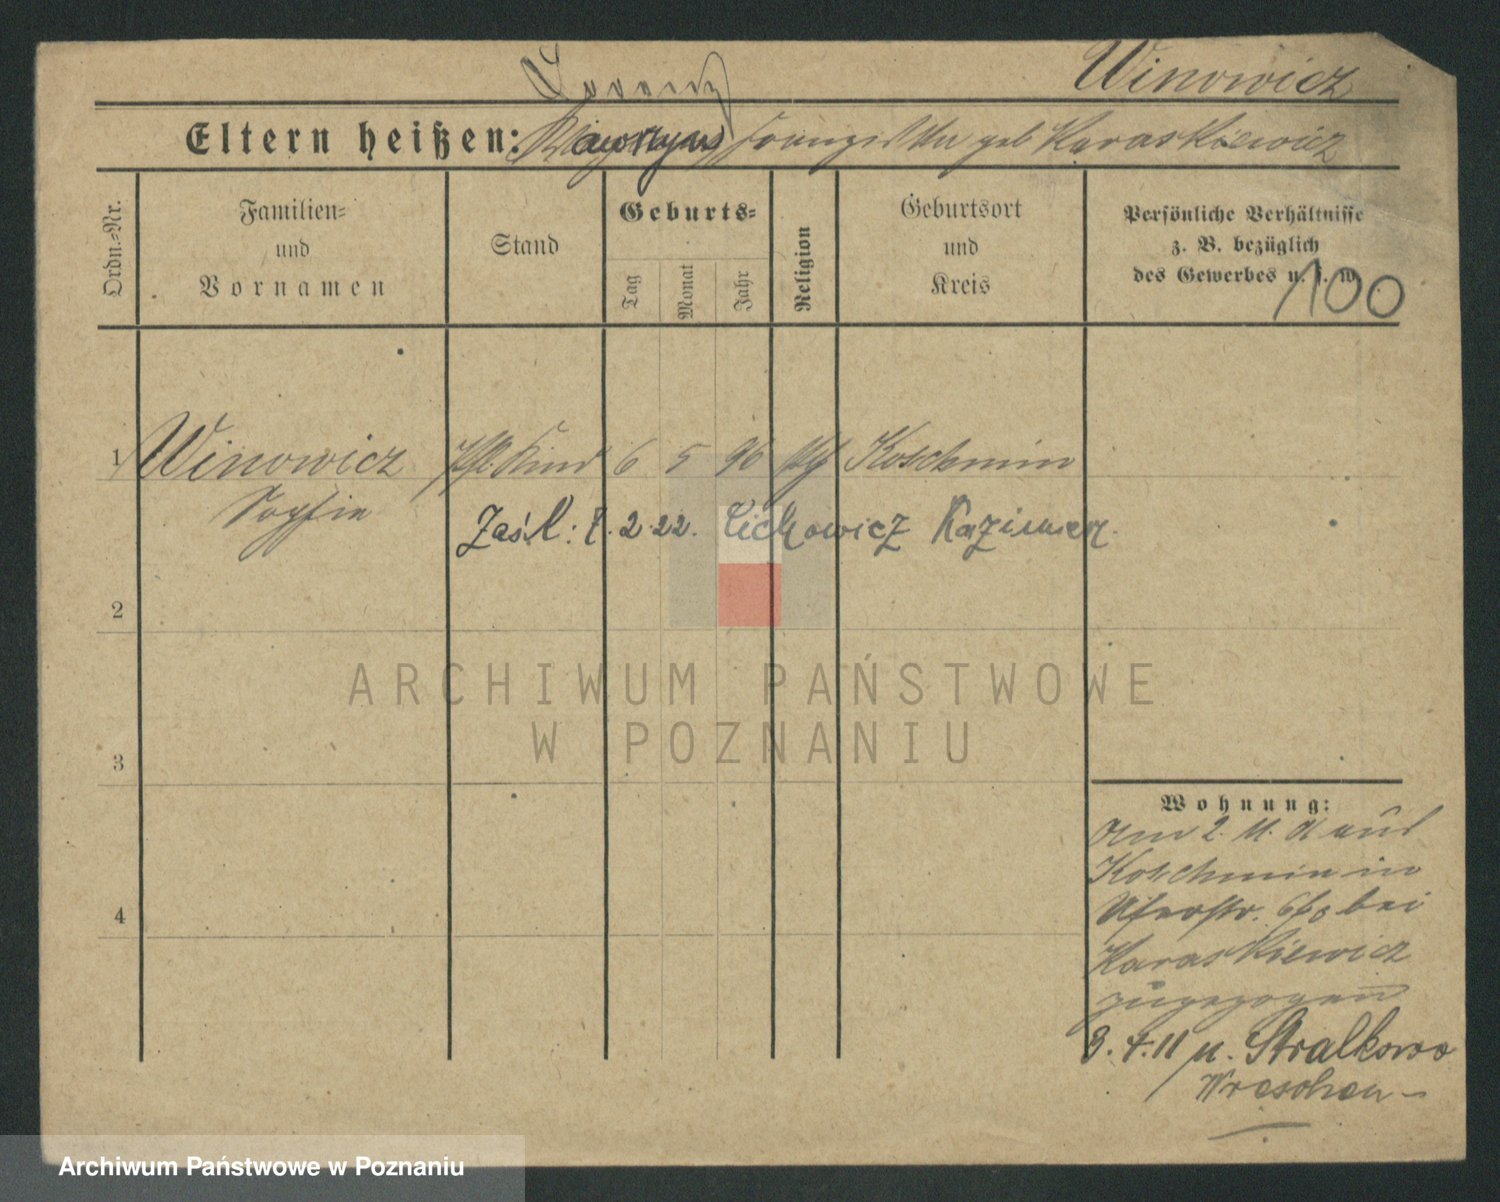 Winowicz
Lorenz
Eltern heißen: Franziska geb Karaskiewicz
Ordn.-Nr.
Familien-
und
Vornamen
Stand
Geburts-
Tag
Monat
Jahr
Religion
Geburtsort
und
Kreis
Persönliche Verhältnisse
z. B. bezüglich
des Gewerbes u. s. w.
100
1 Winowicz Kind 6 5 96 Koschmin
Sophie
Zaśl: 7. 2. 22. Cichowicz Kazimier.
2
ARCHIWUM PAŃSTWOWE
W POZNANIU
3
Wohnung:
Am 2. 11. aus
Koschmin in
Uferstr. bei
4
Karaskiewicz
zugezogen
3. 4. 11 n. Stralkowo
Wreschen
Archiwum Państwowe w Poznaniu